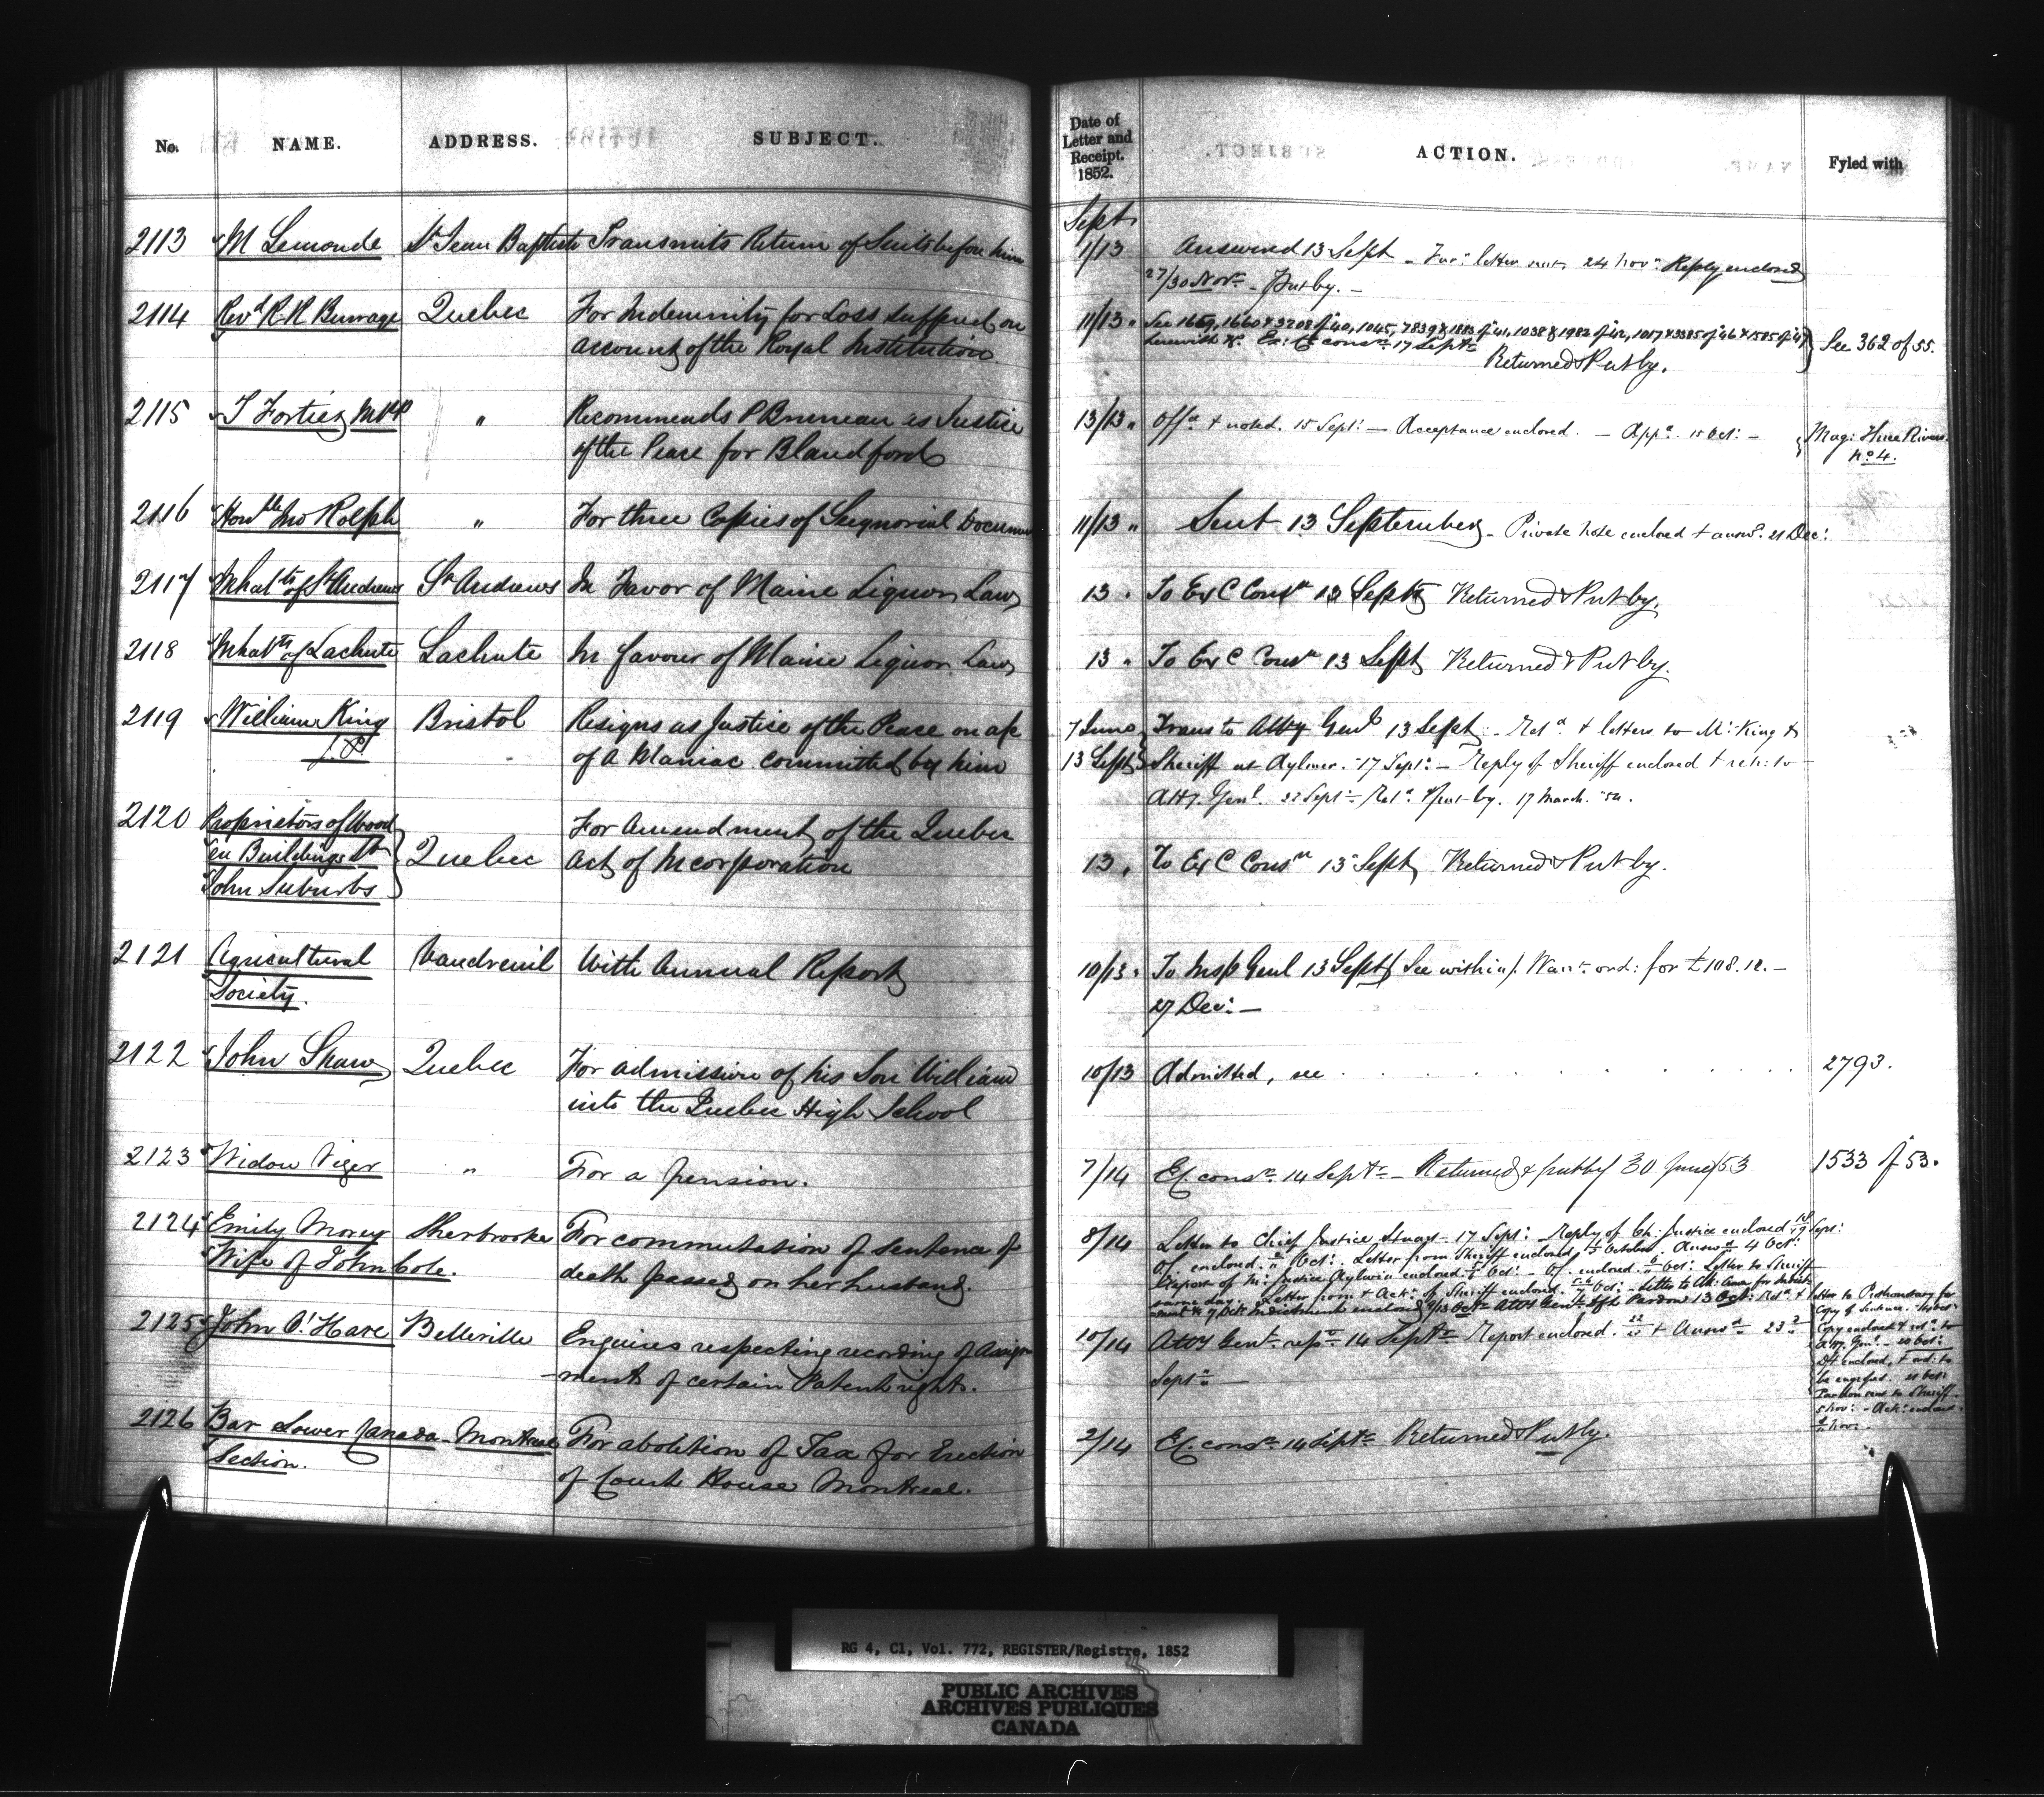 No. NAME. ADDRESS. SUBJECT. Date of Letter and Receipt. 1852. ACTION. Fyled with
Sept
2113 M Lemonde St Jean Baptiste Transmits Return of Suits before him 1/13 Answered 13 Sept - letter 24 Novr. Reply enclosed
27/30 Novr - Put by. -
2114 Revd R. R Burrage Quebec For Indemnity for Loss suffered on 11/13 " See 1659, 1660 & 3208 of 40, 1045, 1038 & 1982 of 42, 1017 & 3385 of 46 & 1585 of 47 See 362 of 55.
account of the Royal Institution herewith Ex: C: consn 17 Septr
Returned & Put by.
2115 T Fortier MPP " Recommends P Bruneau as Justice 13/13 " Offd & noted. 15 Sept: - Acceptance enclosed. - Appd. 15 Oct: - Mag: Three Rivers.
of the Peace for Blandford No 4.
2116 Honble Jno Rolph " For three Copies of Seignorial 11/13 " Sent 13 September - Private note enclosed & answd. 21 Dec:
2117 Inhabts of St Andrews St Andrews In Favor of Maine Liquor Law 13 " To Ex C Consn 13 Sept Returned & Put by.
2118 Inhabts of Lachute Lachute In favour of Maine Liquor Law 13 " To Ex C Consn 13 Sept Returned & Put by.
2119 William King Bristol Resigns as Justice of the Peace on a/c 7 June Trans to Atty Genl 13 Sept - Retd & letters to Mr King &
J.P. of a Maniac committed by him 13 Sept Sheriff at Aylmer. 17 Sept: - Reply of Sheriff enclosed & ret: to
Atty. Genl. 22 Sept - Retd. & put by. 17 March. 54.
2120 Proprietors of Wood For Amendment of the Quebec
en Buildings St Quebec Act of Incorporation 13 " To Ex C Consn 13 Sept Returned & Put by.
John Suburbs
2121 Agricultural Vaudreuil With Annual Report 10/13 " To Insp Genl 13 Sept See within/. Warrt ord: for £108.12. -
Society. 27 Dec: -
2122 John Shaw Quebec For admission of his Son William 10/13 Admitted, see . . . . . . . . . 2793.
into the Quebec High School
2123 Widow Viger " For a pension. 7/14 Ex. consn 14 Septr - Returned & put by 30 June/53 1533 of 53.
2124 Emily Morey Sherbrooke For commutation of Sentence of 8/14 Letter to Chief Justice Stuart - 17 Sept: Reply of Ch: Justice enclosed 18/19 Sept:
Wife of John Cole. death passed on her husband. enclosed Oct: Letter from Sheriff enclosed October. Answd 4 Oct:
Report of Mr. Justice Aylwin enclosed Oct: - enclosed Oct: Letter to Sheriff
same day. Letter from & Ackt of Sheriff enclosed Oct: - Letter to
Indictment enclosed Atty Genl Pardon 13 Oct: Retd & letter to Prothonotary for
Copy of Sentence.
2125 John O'Hare Belleville Enquires respecting recording of Assign 10/14 Atty Genl repn 14 Septr Report enclosed. & Answd 23 Copy enclosed & retd to
ments of certain Patent rights. Septr - Atty. Genl. - 20 Oct:
Dft enclosed, & ord: to
be engrossed.
Pardon sent to Sheriff.
5 Nov: - Ackt:
Nov: -
2126 Bar Lower Canada - Montreal For abolition of Tax for Erection 2/14 Ex. consn 14 Septr Returned & Put by.
Section. of Court House Montreal.
RG 4, C1, Vol. 772, REGISTER/Registre, 1852
PUBLIC ARCHIVES
ARCHIVES PUBLIQUES
CANADA